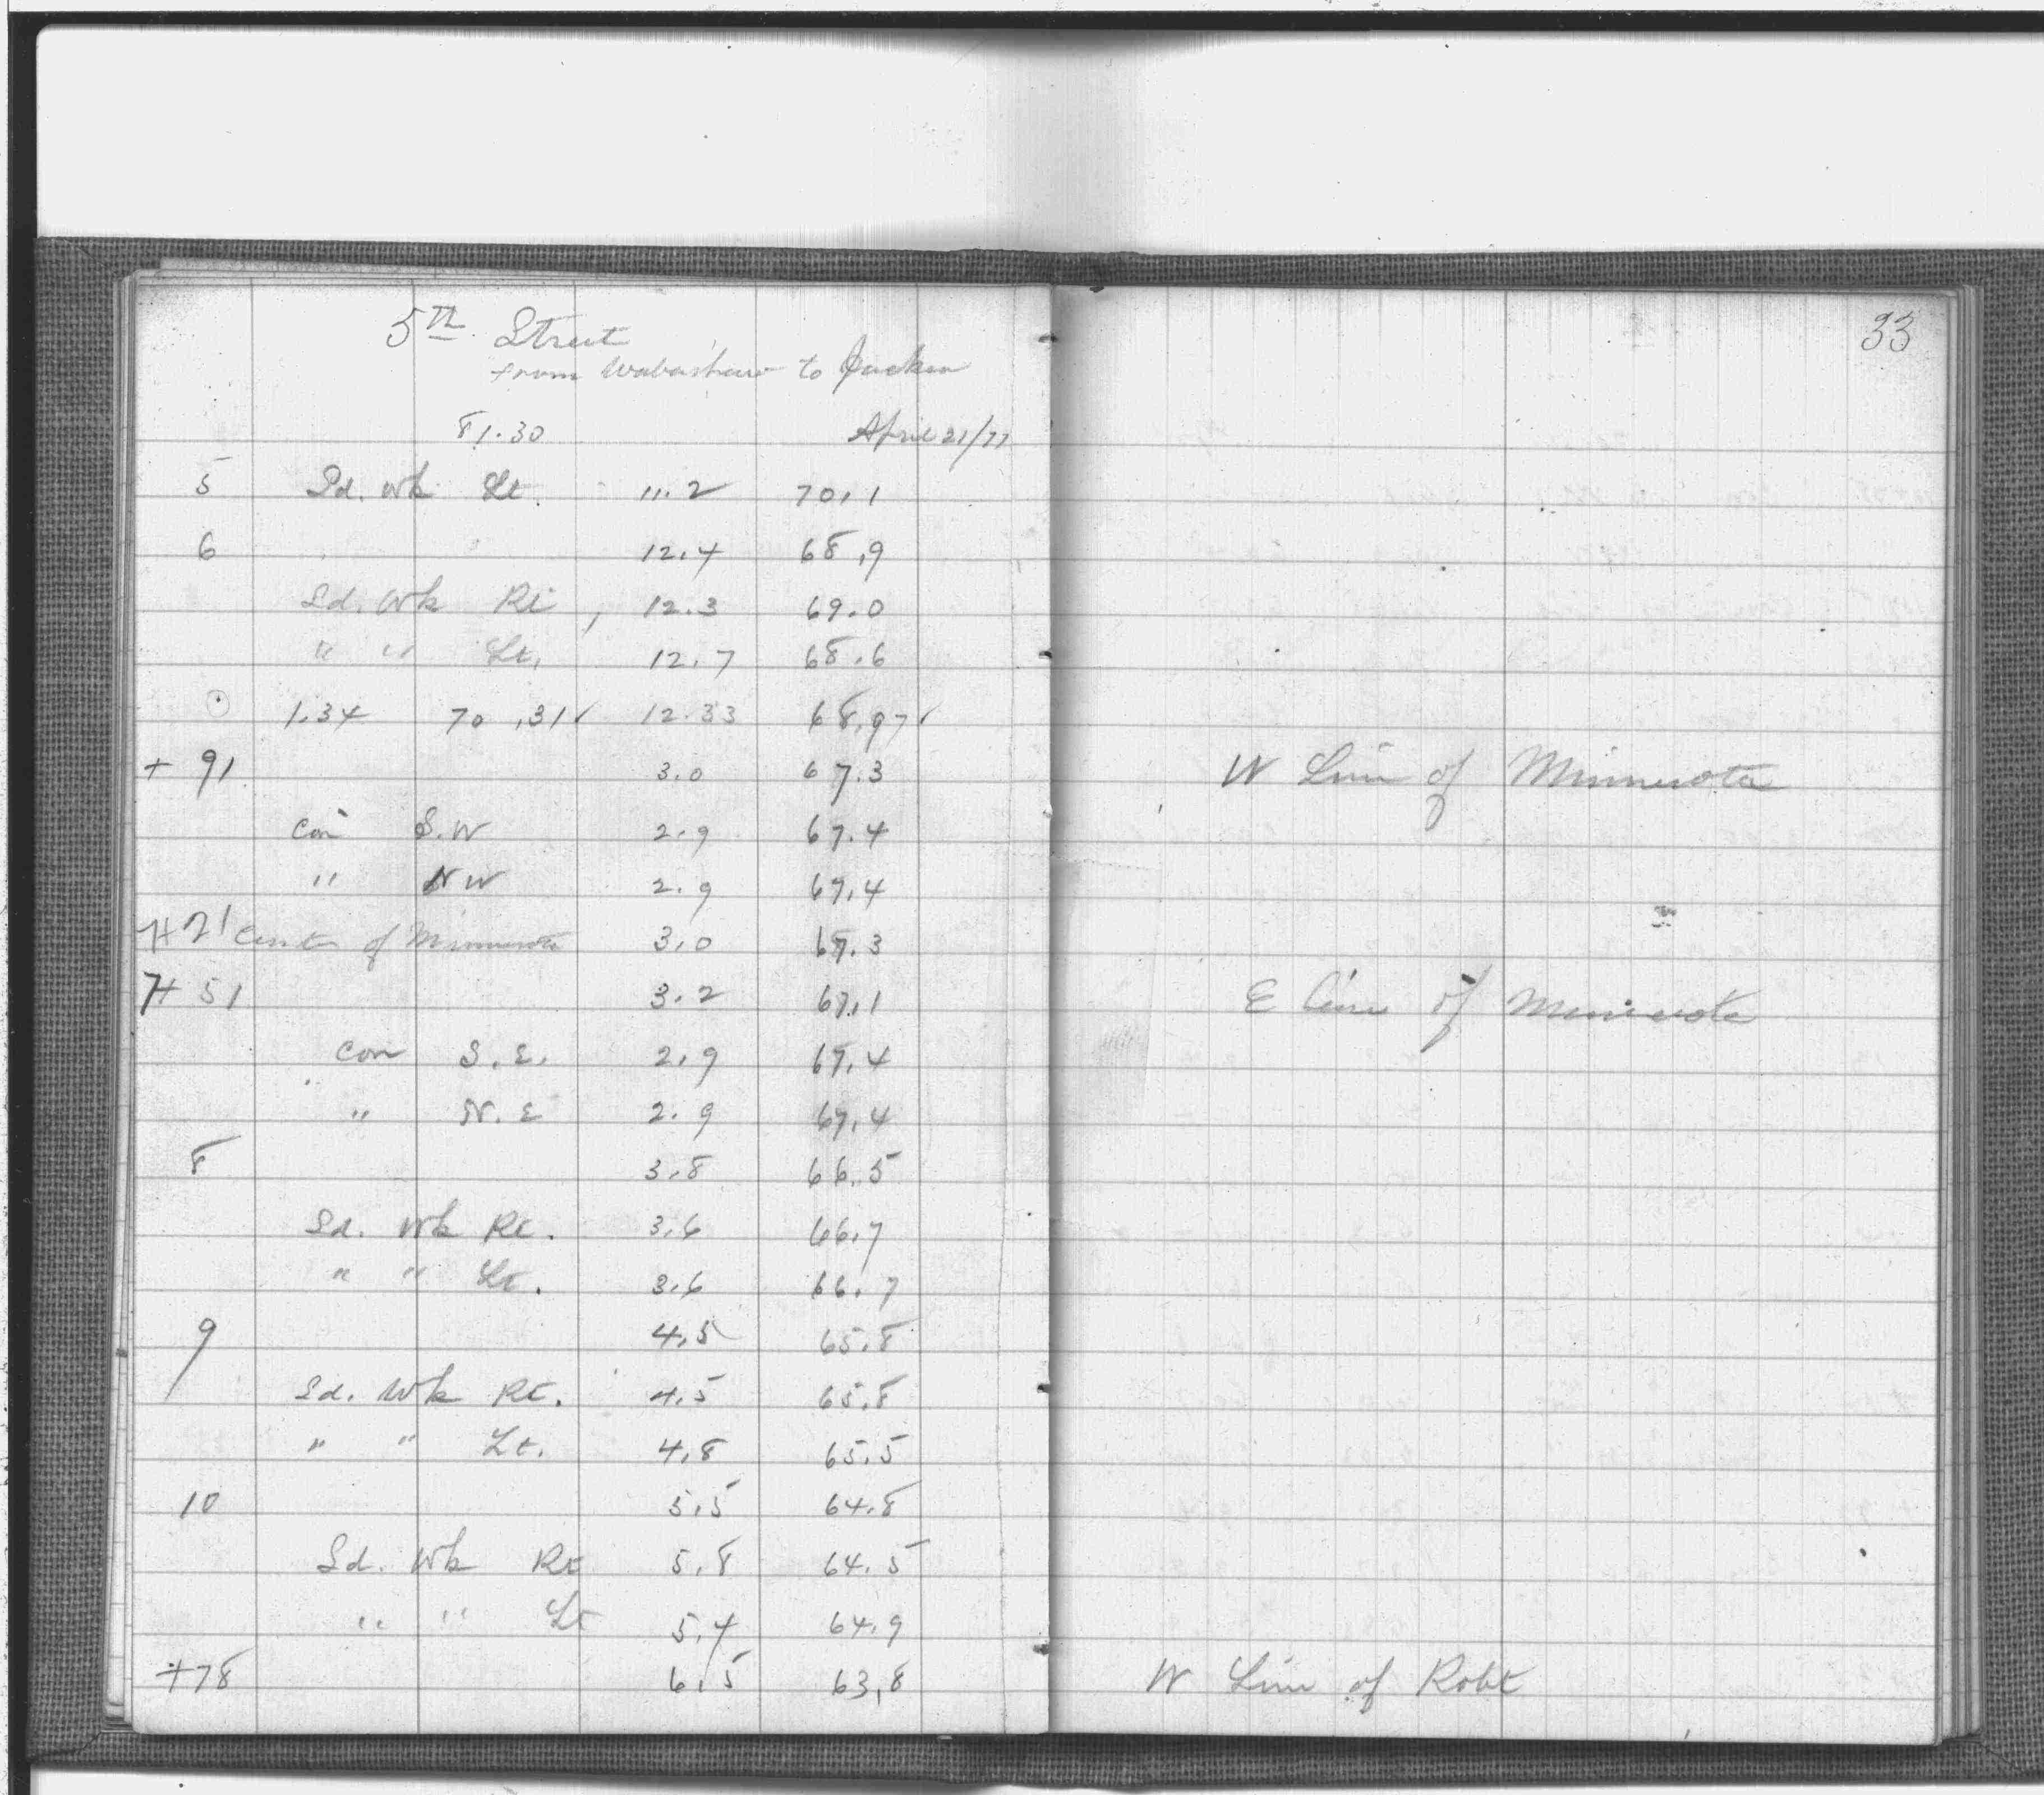 5th Street
from Wabashaw to Jackson
81.30 April 21/77
5 Sd. Wk Lt. 11.2 70.1
6 12.4 68.9
Sd. Wk Rt, 12.3 69.0
" " Lt, 12.7 68.6
⊙ 1.34 70.31✓ 12.33 68.97✓
+ 91 3.0 67.3
Cor S.W 2.9 67.4
" NW 2.9 67.4
7+21 Center of Minnesota 3.0 67.3
7+51 3.2 67.1
Cor S.E. 2.9 67.4
" N.E 2.9 67.4
8 3.8 66.5
Sd. Wk Rt. 3.6 66.7
" " Lt. 3.6 66.7
9 4.5 65.8
Sd. Wk Rt. 4.5 65.8
" " Lt. 4.8 65.5
10 5.5 64.8
Sd. Wk Rt 5.8 64.5
" " Lt 5.4 64.9
+78 6.5 63.8
33
W Line of Minnesota
E Line of Minnesota
W Line of Robt